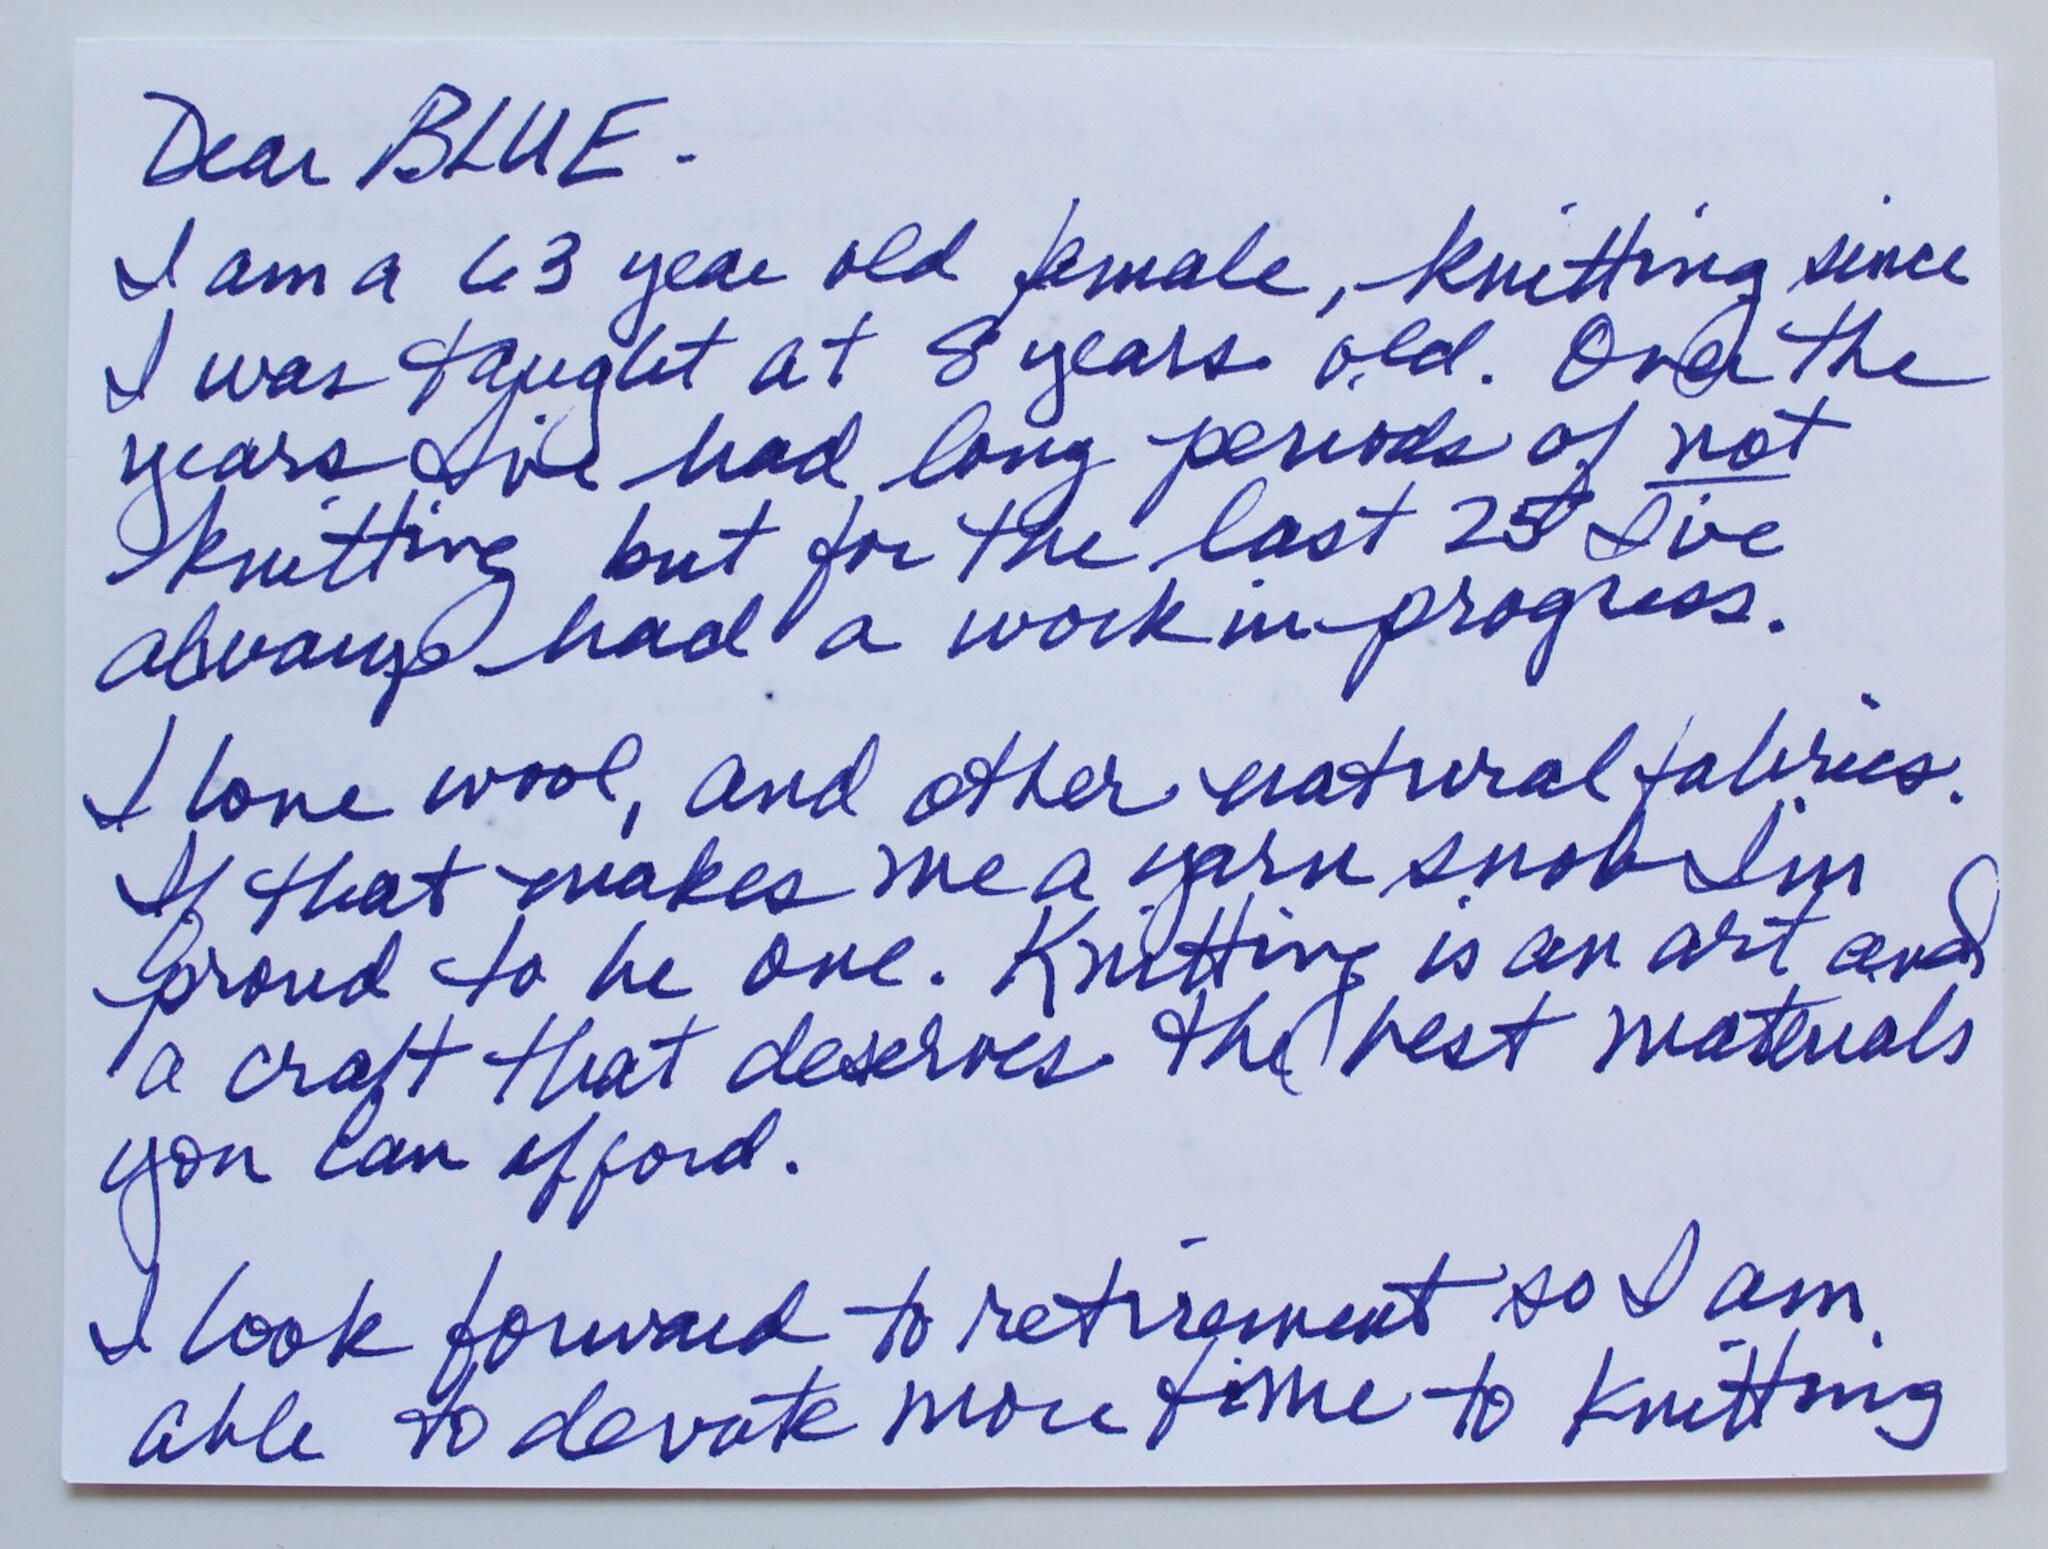 Dear BLUE.
I am a 63 year old female, knitting since
I was taught at 8 years old. Over the
years I've had long periods of not
knitting but for the last 25 I've
always had a work in progress.
I love wool, and other natural fabrics.
If that makes me a yarn snob I'm
proud to be one. Knitting is an art and
a craft that deserves the best materials
you can afford.
I look forward to retirement so I am
able to devote more time to knitting